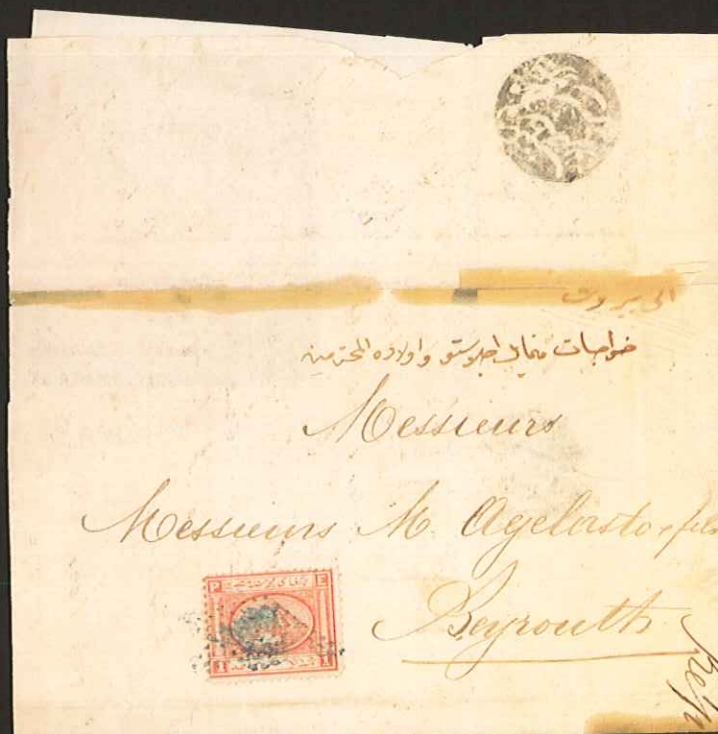 الى بيروت
خواجات مخايل اجلوستو واولاده المحترمين
Messieurs
Messieurs M. Agelasto & fils
Beyrouth
P E
1 1